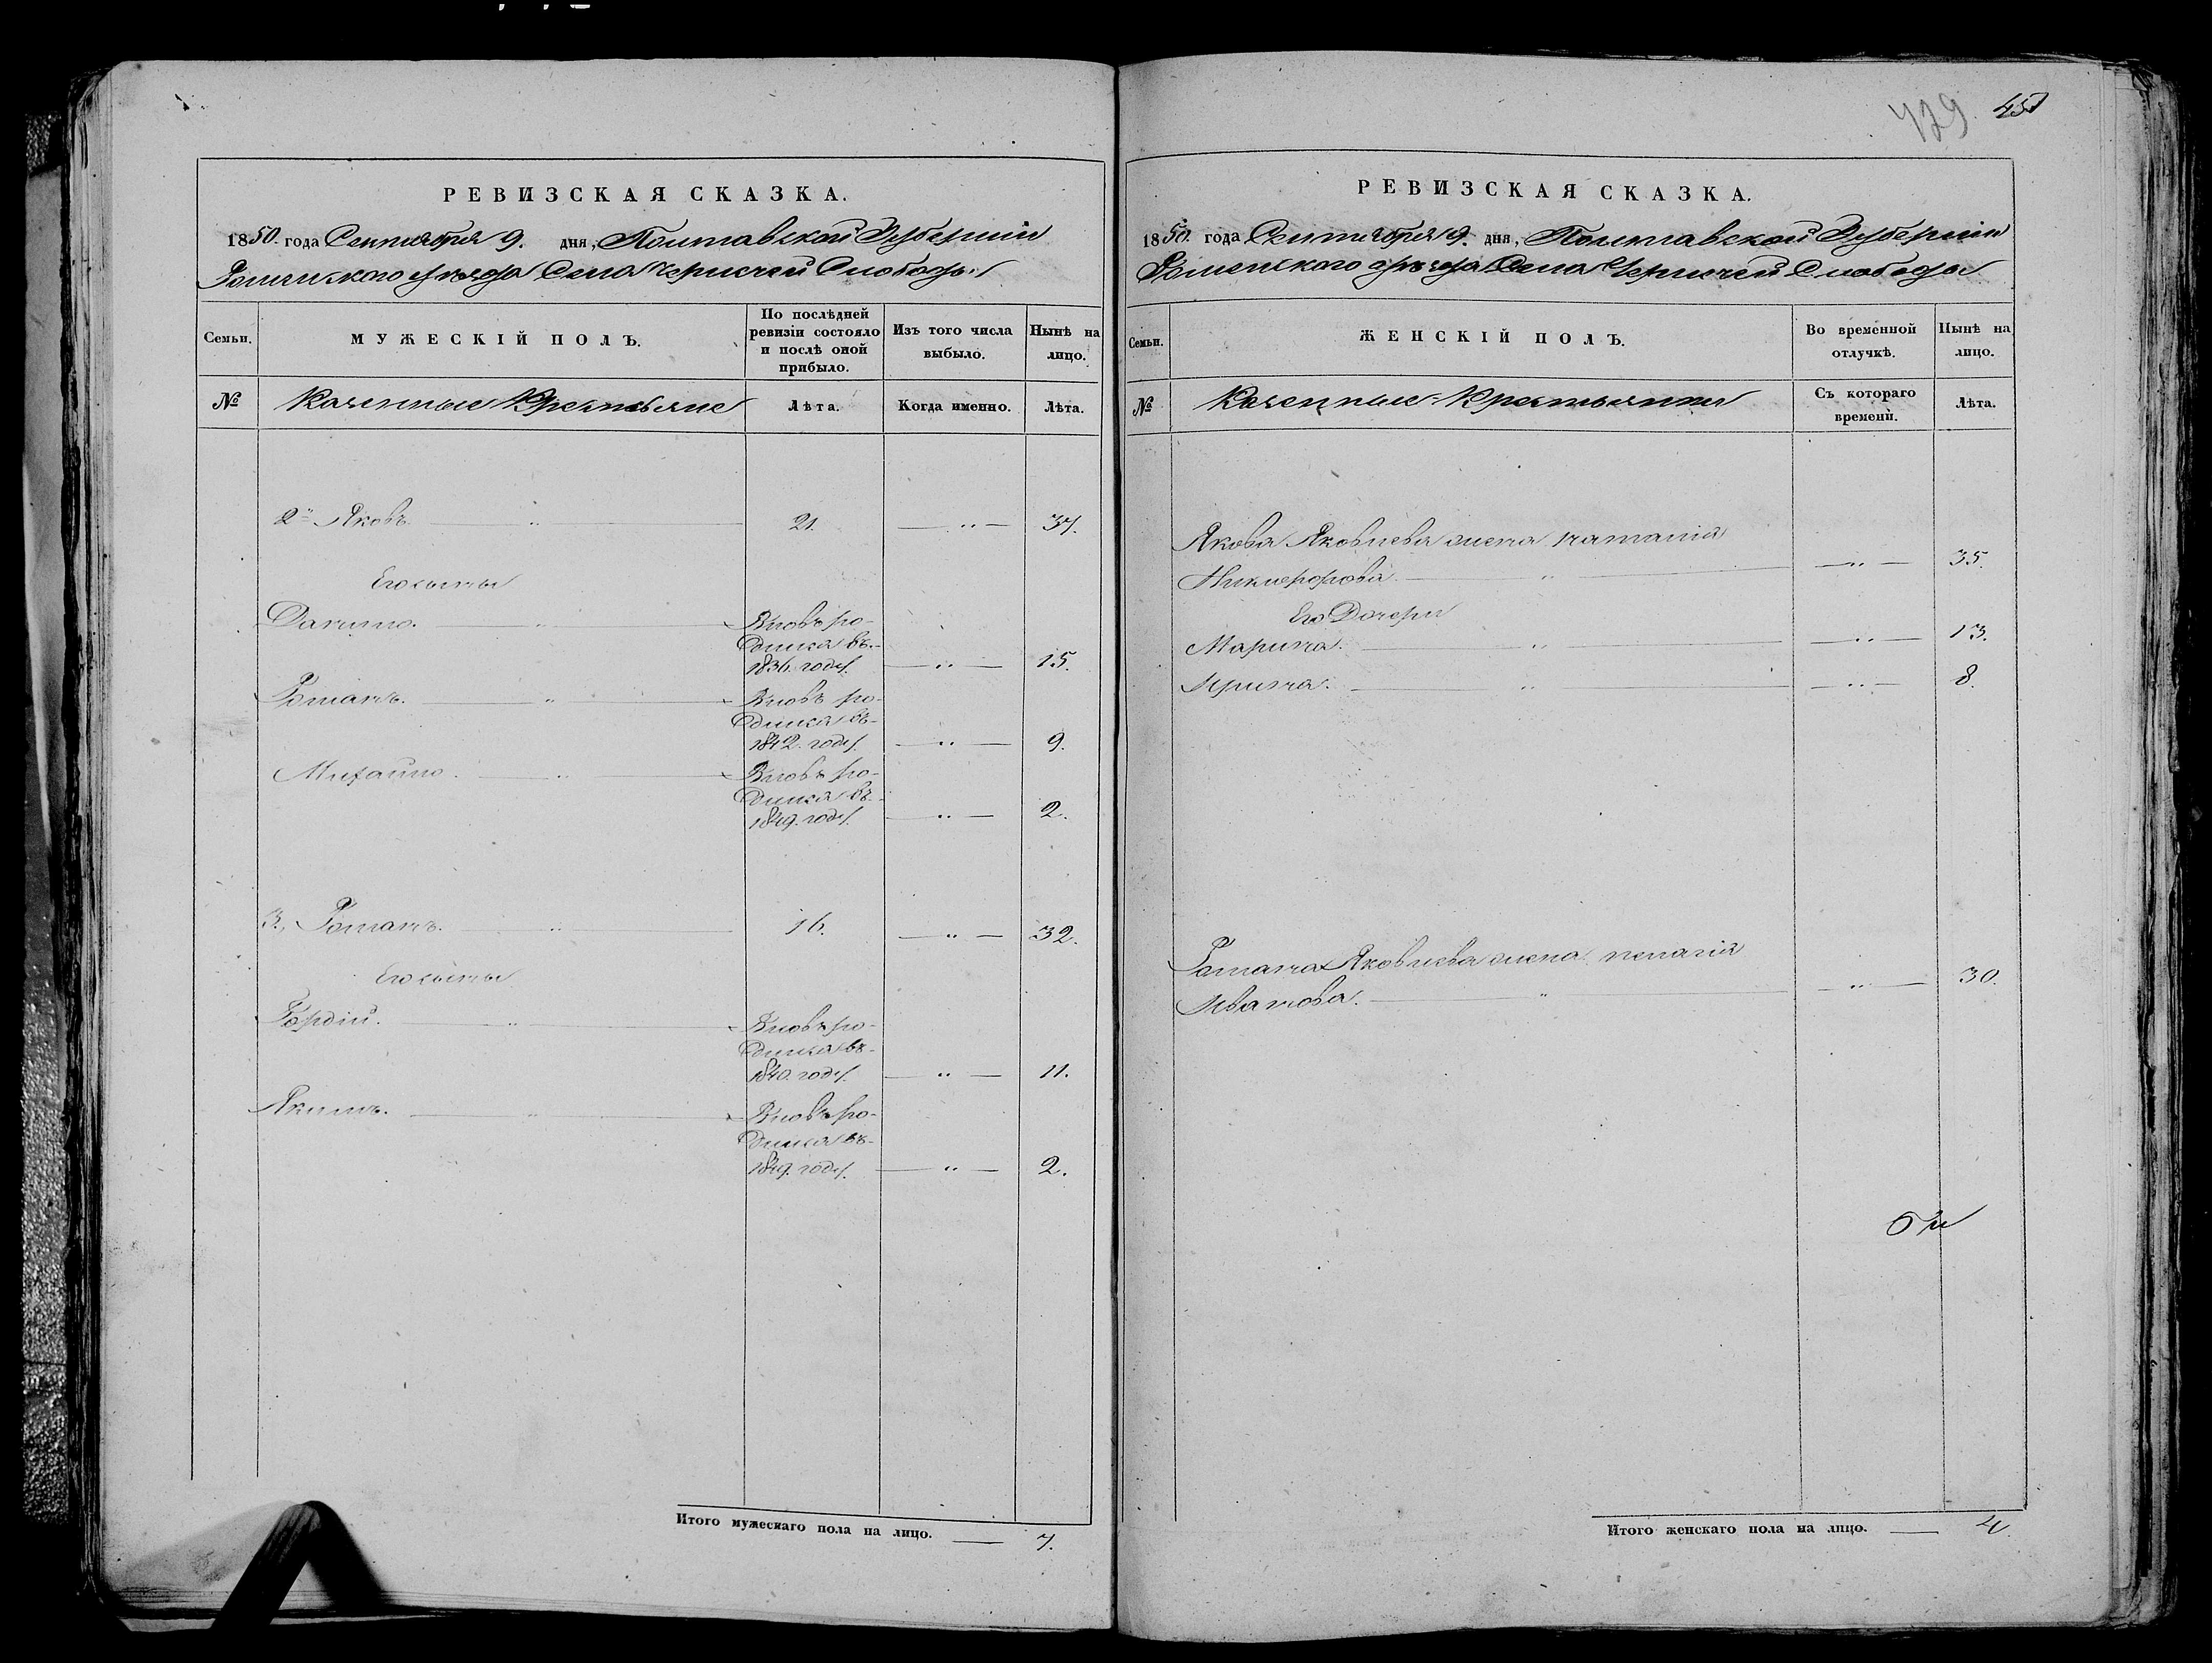 РЕВИЗСКАЯ СКАЗКА.
1850. года Сентября 9. дня, Полтавской Губерніи
Роменского уѣзда Села Чернечей Слободы
Семьи.
МУЖЕСКІЙ ПОЛЪ.
По послѣдней ревизіи состояло и послѣ оной прибыло.
Изъ того числа выбыло.
Нынѣ на лицо.
№
Казенные Крестьяне
Лѣта.
Когда именно.
Лѣта.
2й Яковъ. 21. 37.
Его сыны
Данило. Вновь ро-
дился въ
1836. году. 15.
Романъ. Вновь ро-
дился въ
1842. году. 9.
Михайло. Вновь ро-
дился въ
1849. году. 2.
3., Романъ. 16. 32.
Его сыны
Гордій. Вновь ро-
дился въ
1840. году. 11.
Якимъ. Вновь ро-
дился въ
1849. году. 2.
Итого мужескаго пола на лицо. 7.
429. 451
РЕВИЗСКАЯ СКАЗКА.
1850. года Сентября 9. дня, Полтавской Губерніи
Роменского уѣзда Села Чернечей Слободы
Семьи.
ЖЕНСКІЙ ПОЛЪ.
Во временной отлучкѣ.
Нынѣ на лицо.
№
Казенные Крестьянки
Съ котораго времени.
Лѣта.
Якова Яковлева жена Наталія
Никифорова. 35.
Его Дочери
Марина. 13.
Ирина. 8.
Романа Яковлева жена Пелагія
Иванова. 30.
Итого женскаго пола на лицо. 4.